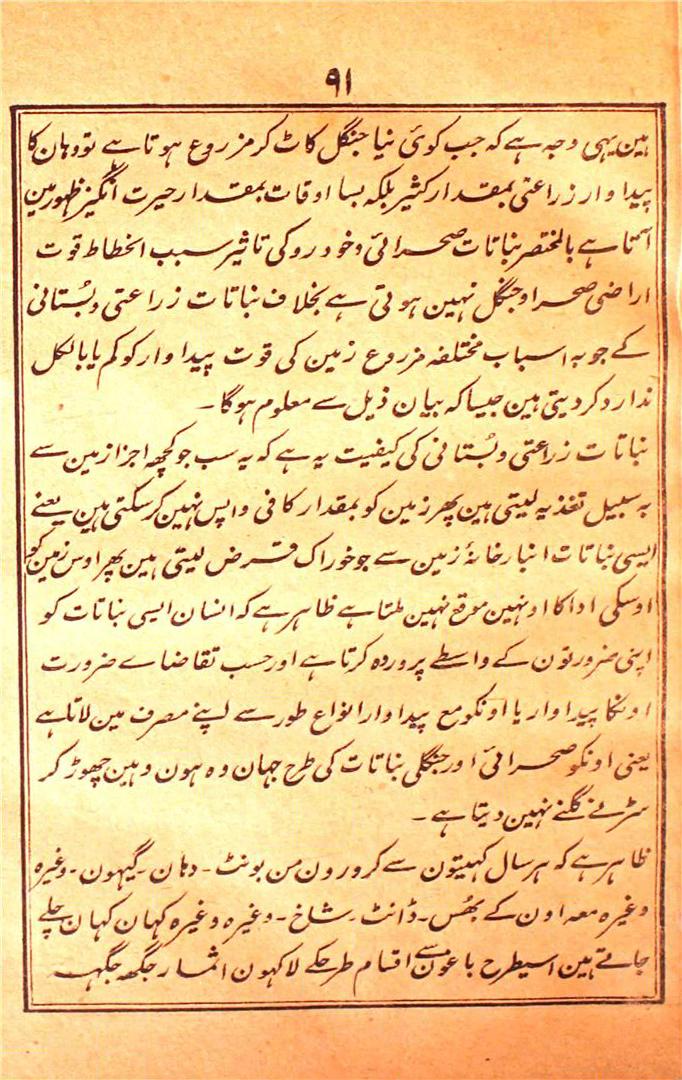 ۹۱
ہین یہی وجہ ہے کہ جب کوئی نیا جنگل کاٹ کر مزروع ہوتا ہے تو وہان کا
پیداوار زراعتی بمقدار کثیر بلکہ بسا اوقات بمقدار حیرت انگیز ظہور مین
آتا ہے بالمختصر نباتات صحرائی و خودرو کی تاثیر سبب انحطاط قوت
اراضی صحرا و جنگل نہین ہوتی ہے بخلاف نباتات زراعتی و بُستانی
کے جو بہ اسباب مختلفہ مزروع زمین کی قوت پیداوار کو کم یا بالکل
ندارد کر دیتی ہین جیسا کہ بیان ذیل سے معلوم ہوگا۔
نباتات زراعتی و بُستانی کی کیفیت یہ ہے کہ یہ سب جو کچھہ اجزا زمین سے
بہ سبیل تغذیہ لیتی ہین پھر زمین کو بمقدار کافی واپس نہین کر سکتی ہین یعنے
ایسی نباتات انبار خانۂ زمین سے جو خوراک قرض لیتی ہین پھر اوس زمین کو
اوسکی ادا کا اونہین موقع نہین ملتا ہے ظاہر ہے کہ انسان ایسی نباتات کو
اپنی ضرورتون کے واسطے پروردہ کرتا ہے اور حسب تقاضاے ضرورت
اونکا پیداوار یا اونکو مع پیداوار انواع طور سے اپنے مصرف مین لاتا ہے
یعنی اونکو صحرائی اور جنگلی نباتات کی طرح جہان وہ ہون وہین چھوڑ کر
سڑنے گلنے نہین دیتا ہے۔
ظاہر ہے کہ ہر سال کہیتون سے کرورون من بونٹ۔ دہان۔ گیہون۔ وغیرہ
وغیرہ معہ اون کے بھُس۔ ڈانٹ۔ شاخ۔ وغیرہ وغیرہ کہان کہان چلے
جاتے ہین اسیطرح باغون سے اقسام طرحکے لاکہون اثمار جگھہ جگہہ